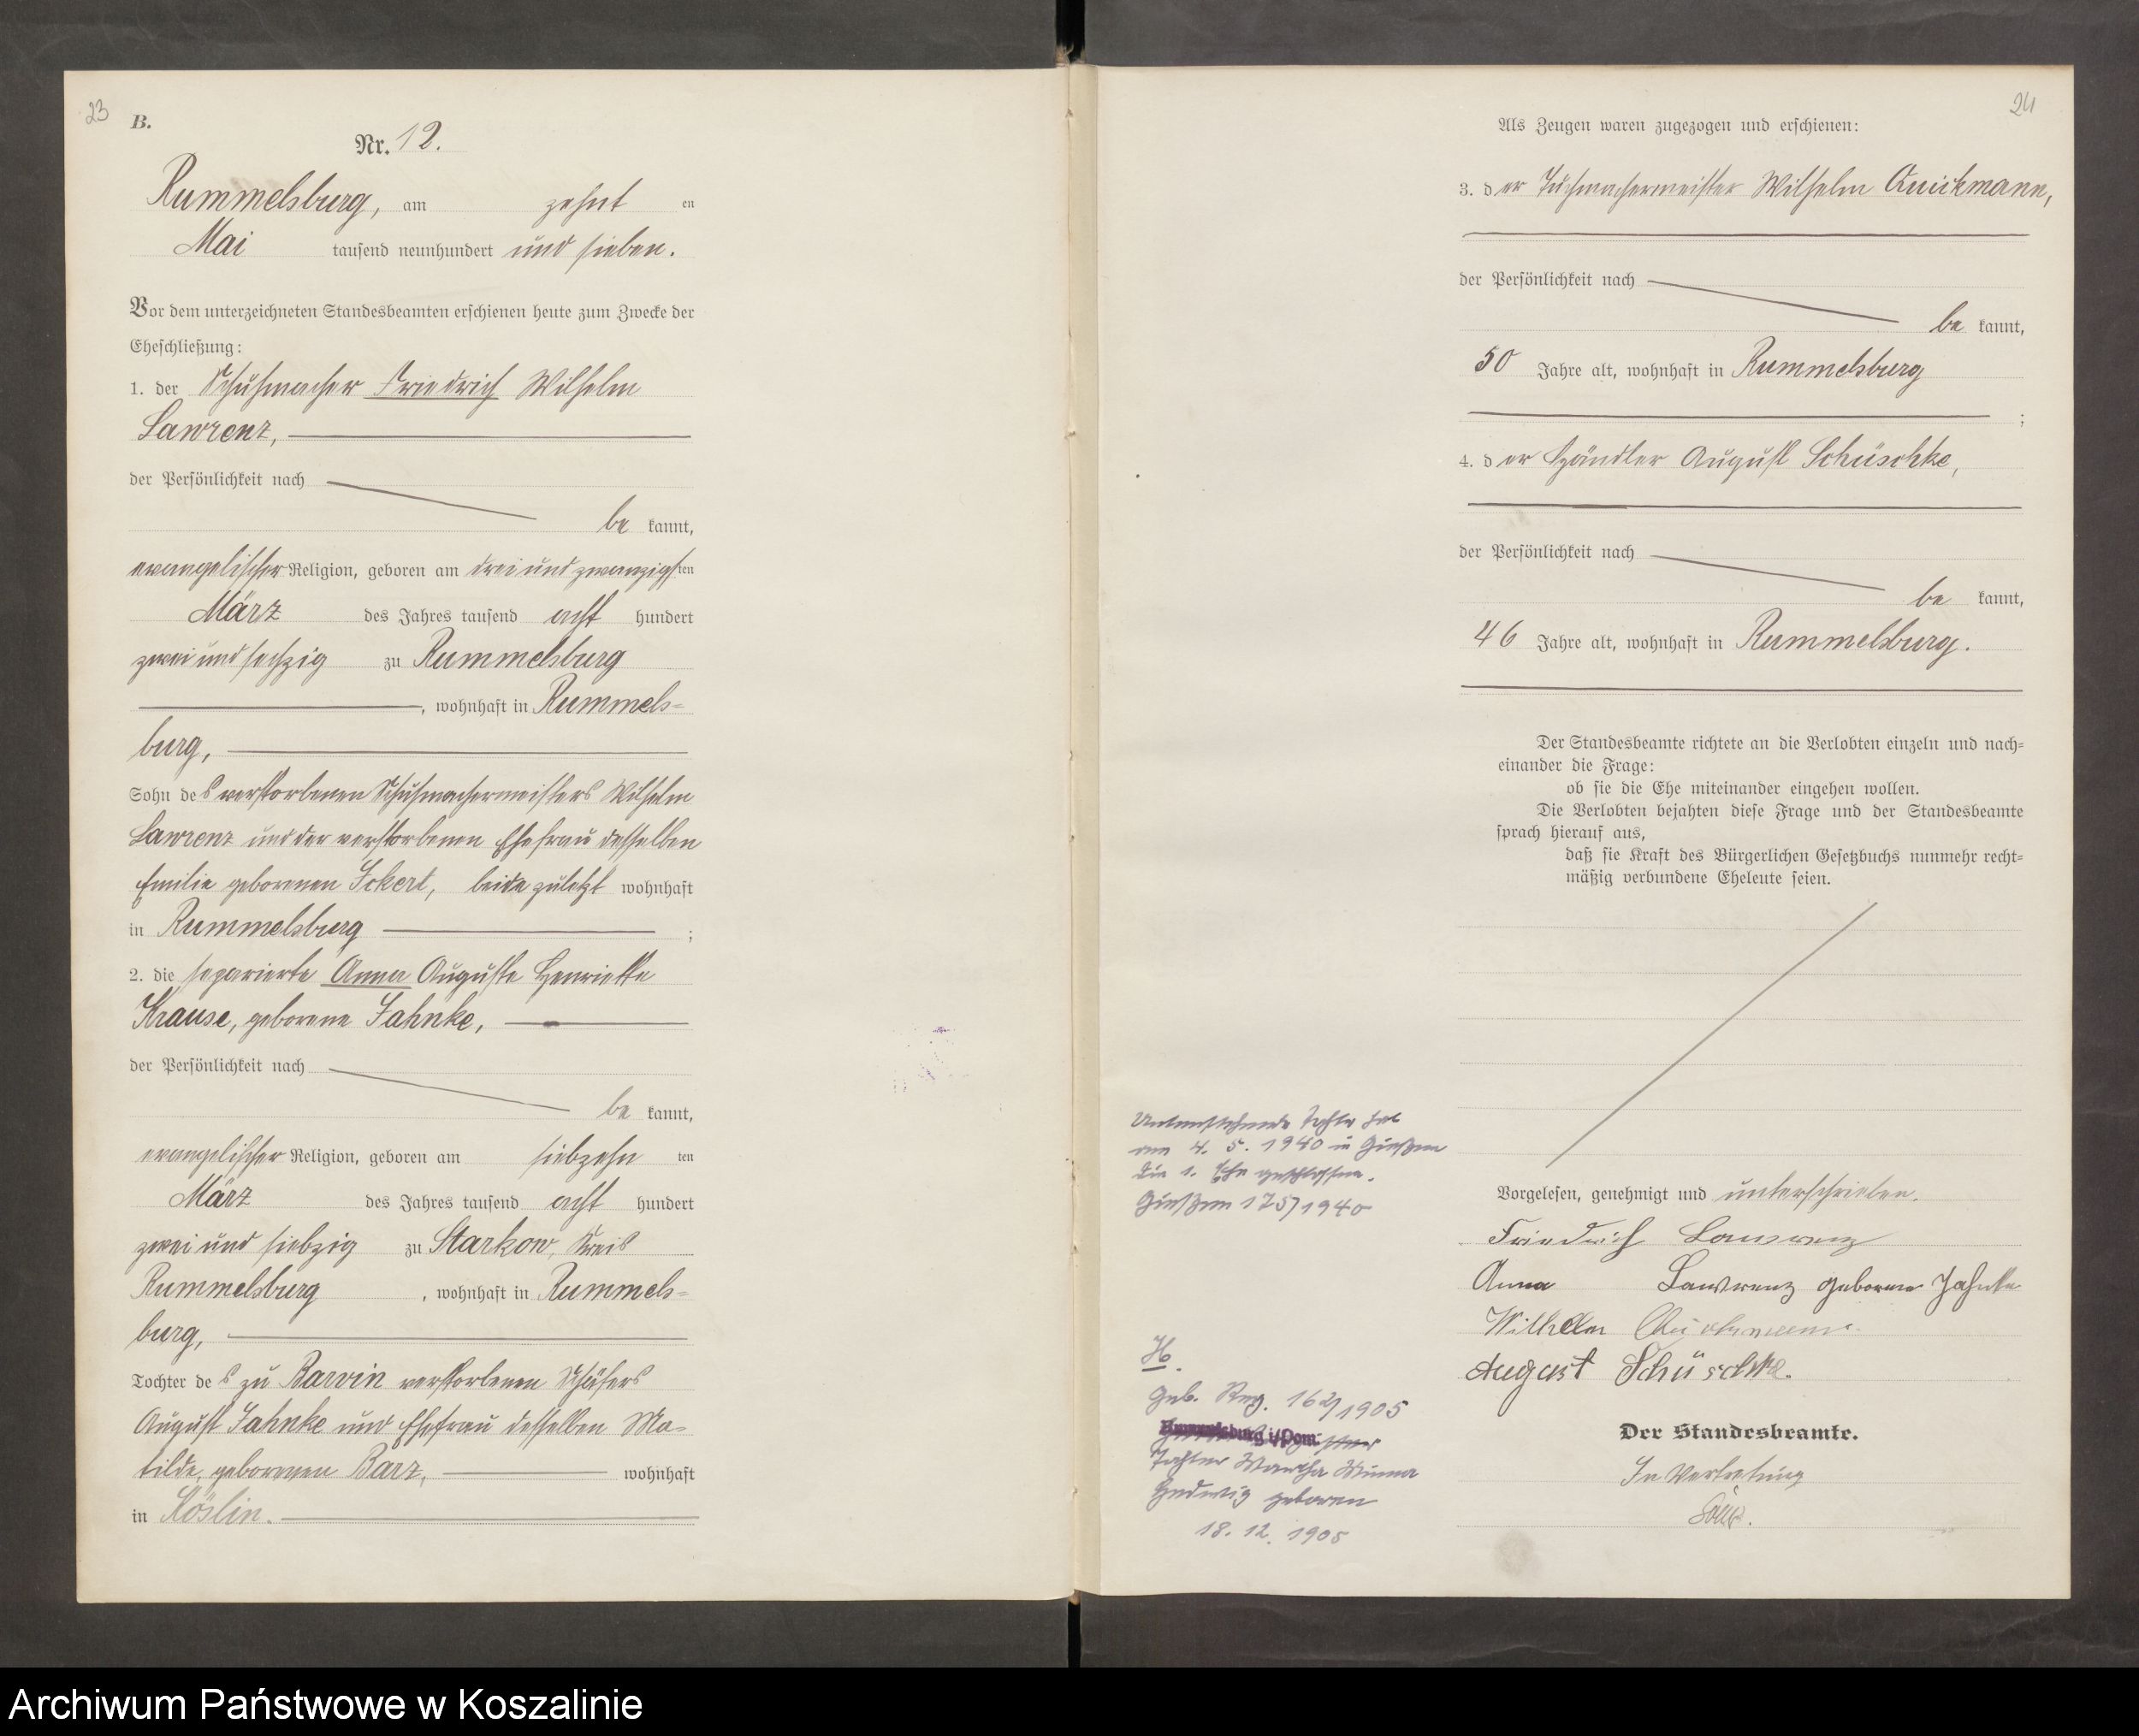 23
B.
Nr. 12.
Rummelsburg, am zehnt en
Mai tausend neunhundert und sieben.
Vor dem unterzeichneten Standesbeamten erschienen heute zum Zwecke der
Eheschließung:
1. der Schuhmacher Friedrich Wilhelm
Lawrenz,
der Persönlichkeit nach
be kannt,
evangelischer Religion, geboren am dreiundzwanzigsten
März des Jahres tausend acht hundert
zweiundsechzig zu Rummelsburg
, wohnhaft in Rummels=
burg,
Sohn des verstorbenen Schuhmachermeisters Wilhelm
Lawrenz und der verstorbenen Ehefrau desselben
Emilie geborenen Ickert, beide zuletzt wohnhaft
in Rummelsburg ;
2. die separierte Anna Auguste Henriette
Krause, geborene Jahnke,
der Persönlichkeit nach
be kannt,
evangelischer Religion, geboren am siebzehn ten
März des Jahres tausend acht hundert
zwei und siebzig zu Starkow, Kreis
Rummelsburg , wohnhaft in Rummels=
burg,
Tochter des zu Barvin verstorbenen Schäfers
August Jahnke und Ehefrau desselben Ma=
tilde, geborenen Barz, wohnhaft
in Köslin.
24
Als Zeugen waren zugezogen und erschienen:
3. der Tuchmachermeister Wilhelm Quickmann,
der Persönlichkeit nach
be kannt,
50 Jahre alt, wohnhaft in Rummelsburg
;
4. der Händler August Schüschke,
der Persönlichkeit nach
be kannt,
46 Jahre alt, wohnhaft in Rummelsburg.
Der Standesbeamte richtete an die Verlobten einzeln und nach=
einander die Frage:
ob sie die Ehe miteinander eingehen wollen.
Die Verlobten bejahten diese Frage und der Standesbeamte
sprach hierauf aus,
daß sie Kraft des Bürgerlichen Gesetzbuchs nunmehr recht=
mäßig verbundene Eheleute seien.
Vorgelesen, genehmigt und unterschrieben.
Friedrich Lawrenz
Anna Lawrenz geborene Jahnke
Wilhelm Quickmann.
August Schüschke.
Der Standesbeamte.
In Vertretung
Untenstehende Tochter hat
am 4. 5. 1940 in Gießen
die 1. Ehe geschlossen.
Gießen 175/1940
H.
Geb. Reg. 162/1905
Rummelsburg i/Pom.
Tochter Martha Minna
Hedwig geboren
18. 12. 1905
Archiwum Państwowe w Koszalinie